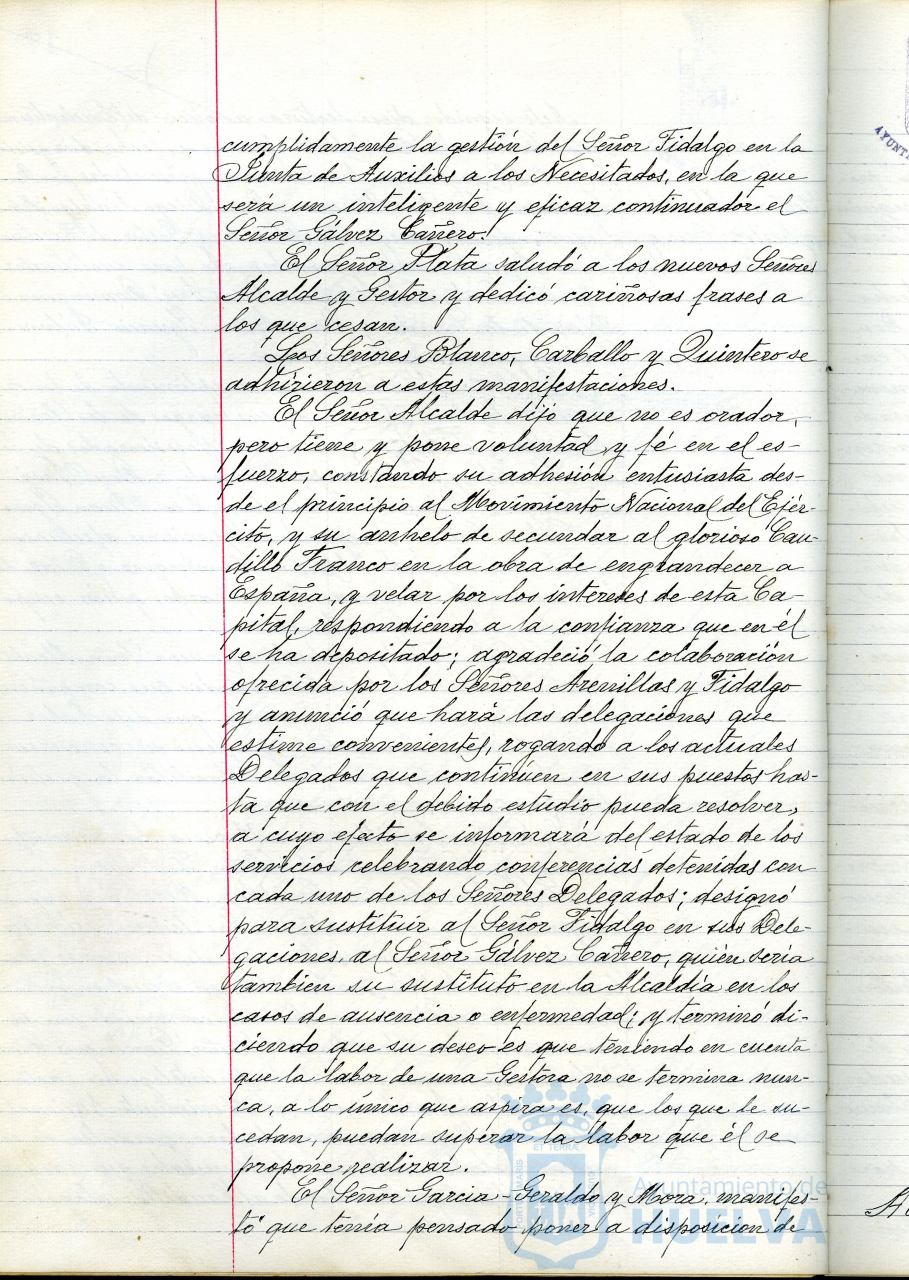 cumplidamente la gestión del Señor Fidalgo en la
Junta de Auxilios a los Necesitados, en la que
será un inteligente y eficaz continuador el
Señor Gálvez Cañero.
El Señor Plata saludó a los nuevos Señores
Alcalde y Gestor y dedicó cariñosas frases a
los que cesan.
Los Señores Blanco, Carballo y Quintero se
adhirieron a estas manifestaciones.
El Señor Alcalde dijo que no es orador,
pero tiene y pone voluntad y fé en el es-
fuerzo, constando su adhesión entusiasta des-
de el principio al Movimiento Nacional del Ejér-
cito, y su anhelo de secundar al glorioso Cau-
dillo Franco en la obra de engrandecer a
España, y velar por los intereses de esta Ca-
pital, respondiendo a la confianza que en él
se ha depositado; agradeció la colaboración
ofrecida por los Señores Arenillas y Fidalgo
y anunció que hará las delegaciones que
estime convenientes, rogando a los actuales
Delegados que continúen en sus puestos has-
ta que con el debido estudio pueda resolver,
a cuyo efecto se informará del estado de los
servicios celebrando conferencias detenidas con
cada uno de los Señores Delegados; designó
para sustituir al Señor Fidalgo en sus Dele-
gaciones, al Señor Gálvez Cañero, quién sería
tambien su sustituto en la Alcaldía en los
casos de ausencia o enfermedad; y terminó di-
ciendo que su deseo es que teniendo en cuenta
que la labor de una Gestora no se termina nun-
ca, a lo único que aspira es, que los que le su-
cedan, puedan superar la labor que él se
propone realizar.
El Señor Garcia-Geraldo y Mora, manifes-
tó que tenía pensado poner a disposicion de
Ayuntamiento de
HUELVA